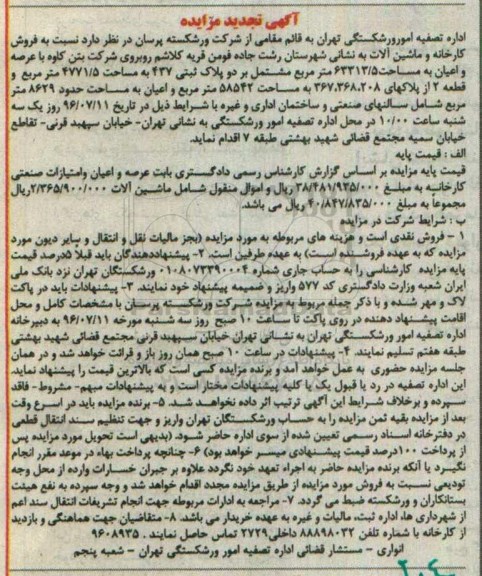 آگهی تجدید مزایده
اداره تصفیه امورورشکستگی تهران به قائم مقامی از شرکت ورشکسته پرسان در نظر دارد نسبت به فروش
کارخانه و ماشین آلات به نشانی شهرستان رشت جاده فومن قریه کلاشم روبروی شرکت بتن کاوه با عرصه
و اعیان به مساحت۶۳۳۱۳/۵ متر مربع مشتمل بر دو پلاک ثبتی ۴۳۷ به مساحت ۴۷۷۱/۵ متر مربع و
قطعه ۲ از پلاکهای ۳۶۷،۳۶۸،۲۰۸ به مساحت ۵۸۵۴۲ متر مربع و اعیان به مساحت حدود ۸۶۲۹ متر
مربع شامل سالنهای صنعتی و ساختمان اداری و غیره با شرایط ذیل در تاریخ ۹۶/۰۷/۱۱ روز یک سه
شنبه ساعت ۱۰/۰۰ در محل اداره تصفیه امور ورشکستگی به نشانی تهران- خیابان سپهبد قرنی- تقاطع
خیابان سمیه مجتمع قضائی شهید بهشتی طبقه ۷ اقدام نماید.
الف : قیمت پایه
قیمت پایه مزایده بر اساس گزارش کارشناس رسمی دادگستری بابت عرصه و اعیان وامتیازات صنعتی
کارخانه به مبلغ ۳۸/۴۸۱/۹۳۵/۰۰۰ ریال و اموال منقول شامل ماشین آلات ۲/۳۶۵/۹۰۰/۰۰۰ریال
مجموعا به مبلغ ۴۰/۸۴۷/۸۳۵/۰۰۰ ریال می باشد.
ب : شرایط شرکت در مزایده
۱ - فروش نقدی است و هزینه های مربوطه به مورد مزایده (بجز مالیات نقل و انتقال و سایر دیون مورد
مزایده که به عهده فروشنده است) به عهده طرفین است. ۲- پیشنهاددهندگان باید قبلا ۵درصد قیمت
پایه مزایده کارشناسی را به حساب جاری شماره ۰۱۰۸۰۷۳۳۹۰۰۰۴ ورشکستگان تهران نزد بانک ملی
ایران شعبه وزارت دادگستری کد ۵۷۷ واریز و ضمیمه پیشنهاد خود نمایند. ۳- پیشنهادات باید در پاکت
لاک و مهر شده و با ذکر جمله مربوط به مزایده شرکت ورشکسته پرسان با مشخصات کامل و محل
اقامت پیشنهاد دهنده در روی پاکت تا ساعت ۱۰ صبح روز سه شنبه مورخه ۹۶/۰۷/۱۱ به دبیرخانه
اداره تصفیه امور ورشکستگی تهران به نشانی تهران خیابان سپهبد قرنی مجتمع قضائی شهید بهشتی
طبقه هفتم تسلیم نمایند. ۴- پیشنهادات در ساعت ۱۰ صبح همان روز باز و قرائت خواهد شد و در همان
جلسه مزایده حضوری به عمل خواهد آمد و برنده مزایده کسی است که بالاترین قیمت را پیشنهاد نماید.
این اداره تصفیه در رد یا قبول یک یا کلیه پیشنهادات مختار است و به پیشنهادات مبهم- مشروط- فاقد
سپرده و برخلاف شرایط این آگهی ترتیب اثر داده نخواهد شد. ۵- برنده مزایده باید در اسرع وقت
بعد از مزایده بقیه ثمن مزایده را به حساب ورشکستگان تهران واریز و جهت تنظیم سند انتقال قطعی
در دفترخانه اسناد رسمی تعیین شده از سوی اداره حاضر شود. (بدیهی است تحویل مورد مزایده پس
از پرداخت ۱۰۰درصد قیمت پیشنهادی میسر خواهد بود) ۶- چنانچه پرداخت بهاء در موعد مقرر انجام
نگیرد یا آنکه برنده مزایده حاضر به اجراء تعهد خود نگردد علاوه بر جبران خسارات وارده از محل وجه
تودیعی نسبت به فروش مورد مزایده از طریق مزایده مجدد اقدام خواهد شد و وجه سپرده به نفع هیئت
بستانکاران و ورشکسته ضبط می گردد. ۷- مراجعه به ادارات مربوطه جهت انجام تشریفات انتقال سند اعم
از شهرداری ها، اداره ثبت، مالیات و غیره به عهده خریدار می باشد. ۸- متقاضیان جهت هماهنگی و بازدید
از کارخانه با شماره تلفن ۸۸۸۹۸۰۳۲ داخلی۲۷۲۹ تماس حاصل نمایند . ۹۶۰۸۹۳۵
انواری - مستشار قضائی اداره تصفیه امور ورشکستگی تهران - شعبه پنجم